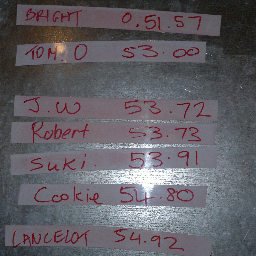 BRIGHT 0.51.57
TOM O 53.00
J.W 53.72
Robert 53.73
Suki. 53.91
Cookie 54.80
LANCELOT 54.92